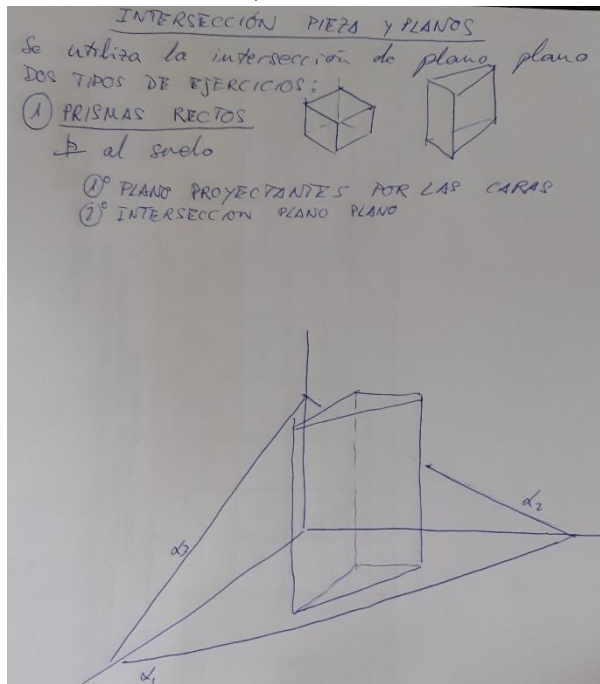 INTERSECCIÓN PIEZA Y PLANOS
Se utiliza la intersección de plano, plano
DOS TIPOS DE EJERCICIOS:
① PRISMAS RECTOS
al suelo
①º PLANO PROYECTANTES POR LAS CARAS
②º INTERSECCION PLANO PLANO
α₃
α₂
α₁